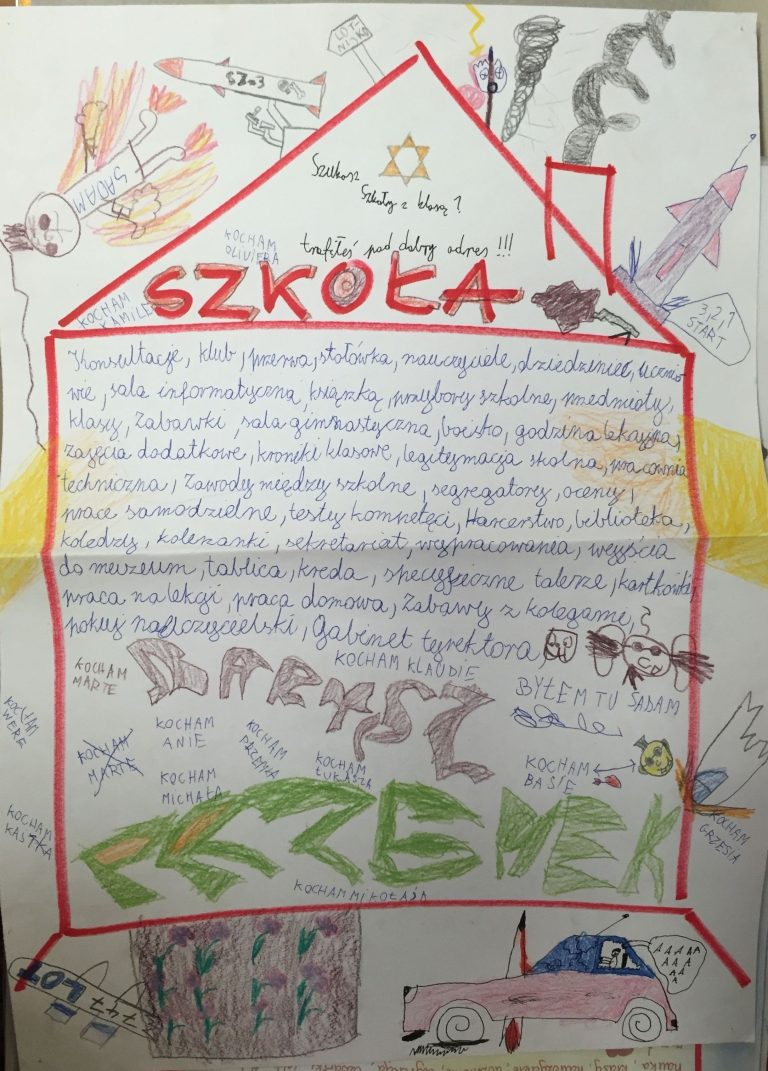 LOT-
NISKO
SZ-3
SADAM
Szukasz
Szkoły z klasą?
trafiłeś pod dobry adres !!!
KOCHAM
OLIVIERA
KOCHAM
KAMILE
SZKOŁA
3, 2, 1
START
Konsultacje, klub, przerwa, stołówka, nauczyciele, dziedziniec, ucznio
wie, sala informatyczną, książką, przybory szkolne, przedmioty,
klasy, Zabawki, sala gimnastyczna, boisko, godzina lekcyjna,
zajęcia dodatkowe, kroniki klasowe, legitymacja skolna, pracownia
techniczna, Zawody między szkolne, segregatory, oceny,
prace samodzielne, testy kompetęcji, Harcerstwo, biblioteka,
koledzy, koleżanki, sekretariat, wypracowania, wyjścia
do muzeum, tablica, kreda, specyficzne talerze, kartkówki,
praca na lekcji, praca domowa, Zabawy z kolegami,
pokuj nauczycielski, Gabinet dyrektora,
KOCHAM
MARTE
KOCHAM KLAUDIE
BYŁEM TU SADAM
KOCHAM
WERE
KOCHAM
MARTE
KOCHAM
ANIE
KOCHAM
PRZEMKA
KOCHAM
ŁUKASZA
KOCHAM
BASIE
KOCHAM
MICHAŁA
KOCHAM
KASTKA
KOCHAM
GRZESIA
PRZEMEK
KOCHAM MIKOŁAJA
LOT
747
AAAAA
AAA
AA
A